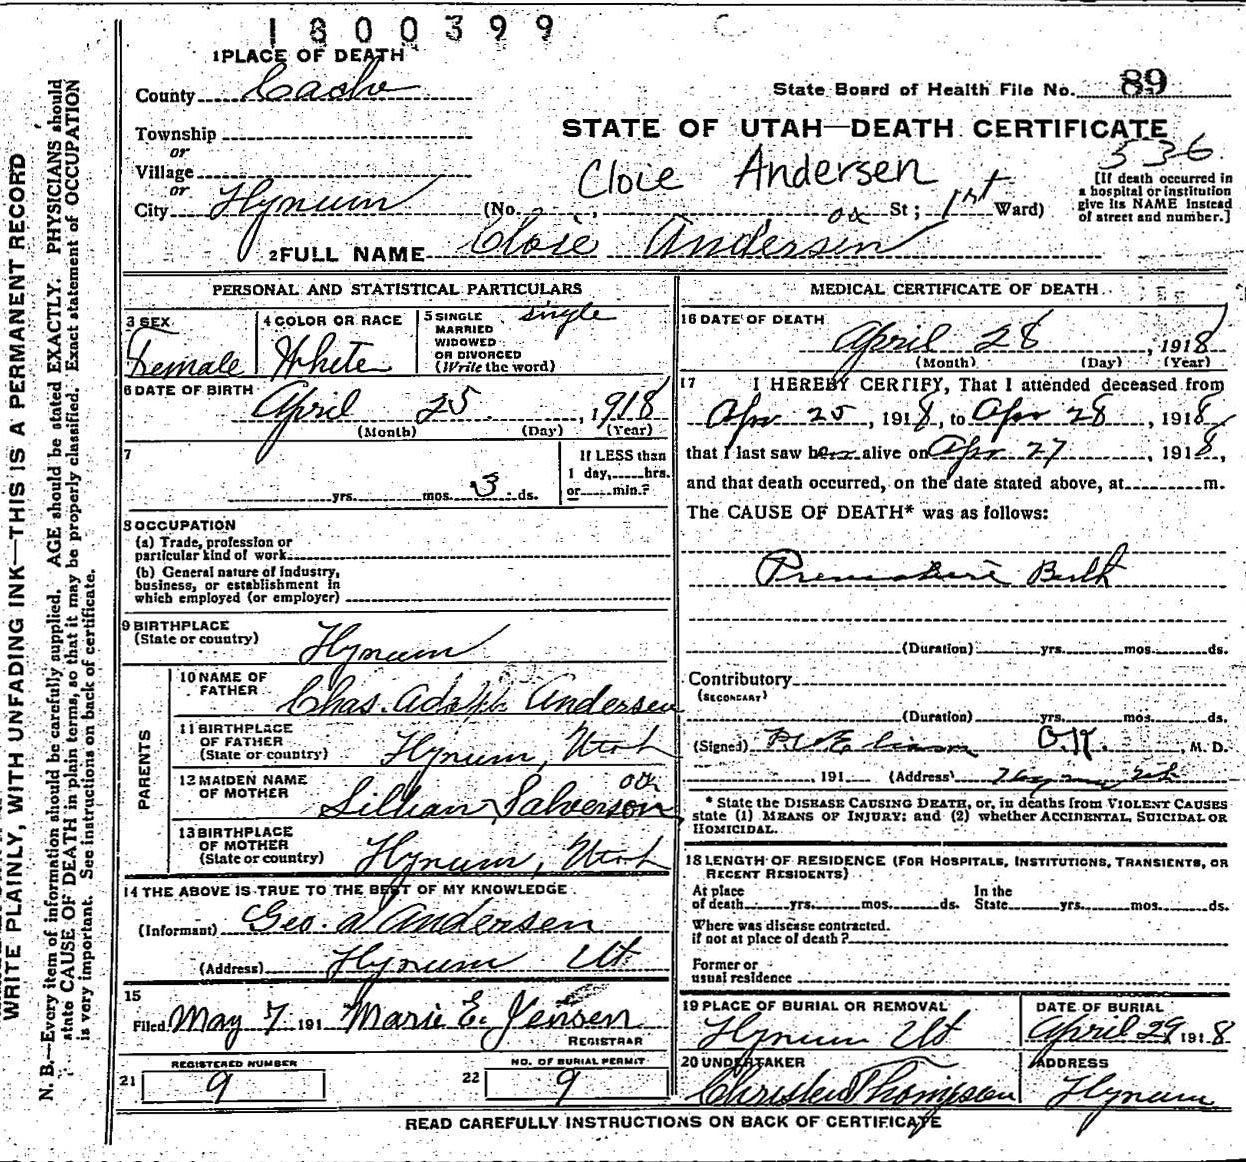 1800399
1 PLACE OF DEATH
County Cache
State Board of Health File No. 89
Township
or
STATE OF UTAH—DEATH CERTIFICATE
536
Village
or
Cloie Andersen
[If death occurred in
a hospital or institution
give its NAME instead
of street and number.]
City Hyrum (No. , St; 1st Ward)
ok
2 FULL NAME Cloie Andersen
PERSONAL AND STATISTICAL PARTICULARS
3 SEX
Female
4 COLOR OR RACE
White
5 SINGLE
MARRIED
WIDOWED
OR DIVORCED
(Write the word)
single
6 DATE OF BIRTH
April 25 , 1918
(Month) (Day) (Year)
7
yrs. mos. 3 ds.
If LESS than
1 day, hrs.
or min.?
8 OCCUPATION
(a) Trade, profession or
particular kind of work
(b) General nature of industry,
business, or establishment in
which employed (or employer)
9 BIRTHPLACE
(State or country) Hyrum
PARENTS
10 NAME OF
FATHER Chas. Adolph Andersen
11 BIRTHPLACE
OF FATHER
(State or country) Hyrum, Utah
12 MAIDEN NAME
OF MOTHER Lillian Salverson
ok
13 BIRTHPLACE
OF MOTHER
(State or country) Hyrum, Utah
14 THE ABOVE IS TRUE TO THE BEST OF MY KNOWLEDGE
(Informant) Geo. A Andersen
(Address) Hyrum Ut
15
Filed May 7 191 Marie E. Jensen
REGISTRAR
REGISTERED NUMBER
21 9
NO. OF BURIAL PERMIT
22 9
MEDICAL CERTIFICATE OF DEATH
16 DATE OF DEATH
April 28 , 1918
(Month) (Day) (Year)
17 I HEREBY CERTIFY, That I attended deceased from
Apr 25 , 1918, to Apr 28 , 1918,
that I last saw her alive on Apr 27 , 1918,
and that death occurred, on the date stated above, at m.
The CAUSE OF DEATH* was as follows:
Premature Birth
(Duration) yrs. mos. ds.
Contributory
(SECONDARY)
(Duration) yrs. mos. ds.
(Signed) O.K. , M. D.
, 191 (Address) Hyrum Ut
* State the DISEASE CAUSING DEATH, or, in deaths from VIOLENT CAUSES
state (1) MEANS OF INJURY; and (2) whether ACCIDENTAL, SUICIDAL OR
HOMICIDAL.
18 LENGTH OF RESIDENCE (FOR HOSPITALS, INSTITUTIONS, TRANSIENTS, OR
RECENT RESIDENTS)
At place
of death yrs. mos. ds.
In the
State yrs. mos. ds.
Where was disease contracted.
if not at place of death?
Former or
usual residence
19 PLACE OF BURIAL OR REMOVAL
Hyrum Ut
DATE OF BURIAL
April 29 1918
20 UNDERTAKER
Christen Thompson
ADDRESS
Hyrum
READ CAREFULLY INSTRUCTIONS ON BACK OF CERTIFICATE
WRITE PLAINLY, WITH UNFADING INK—THIS IS A PERMANENT RECORD
N. B.—Every item of information should be carefully supplied. AGE should be stated EXACTLY. PHYSICIANS should
state CAUSE OF DEATH in plain terms, so that it may be properly classified. Exact statement of OCCUPATION
is very important. See instructions on back of certificate.